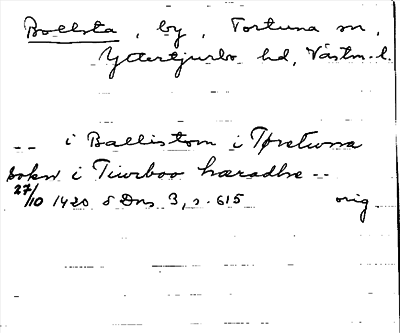 Bollsta, by, Tortuna sn,
Yttertjurbo hd, Västm. l.
-- i Ballistom i Tøretuna
sokn i Tiurboo hæradhe --
27/10 1420 SDns 3, s. 615 orig.